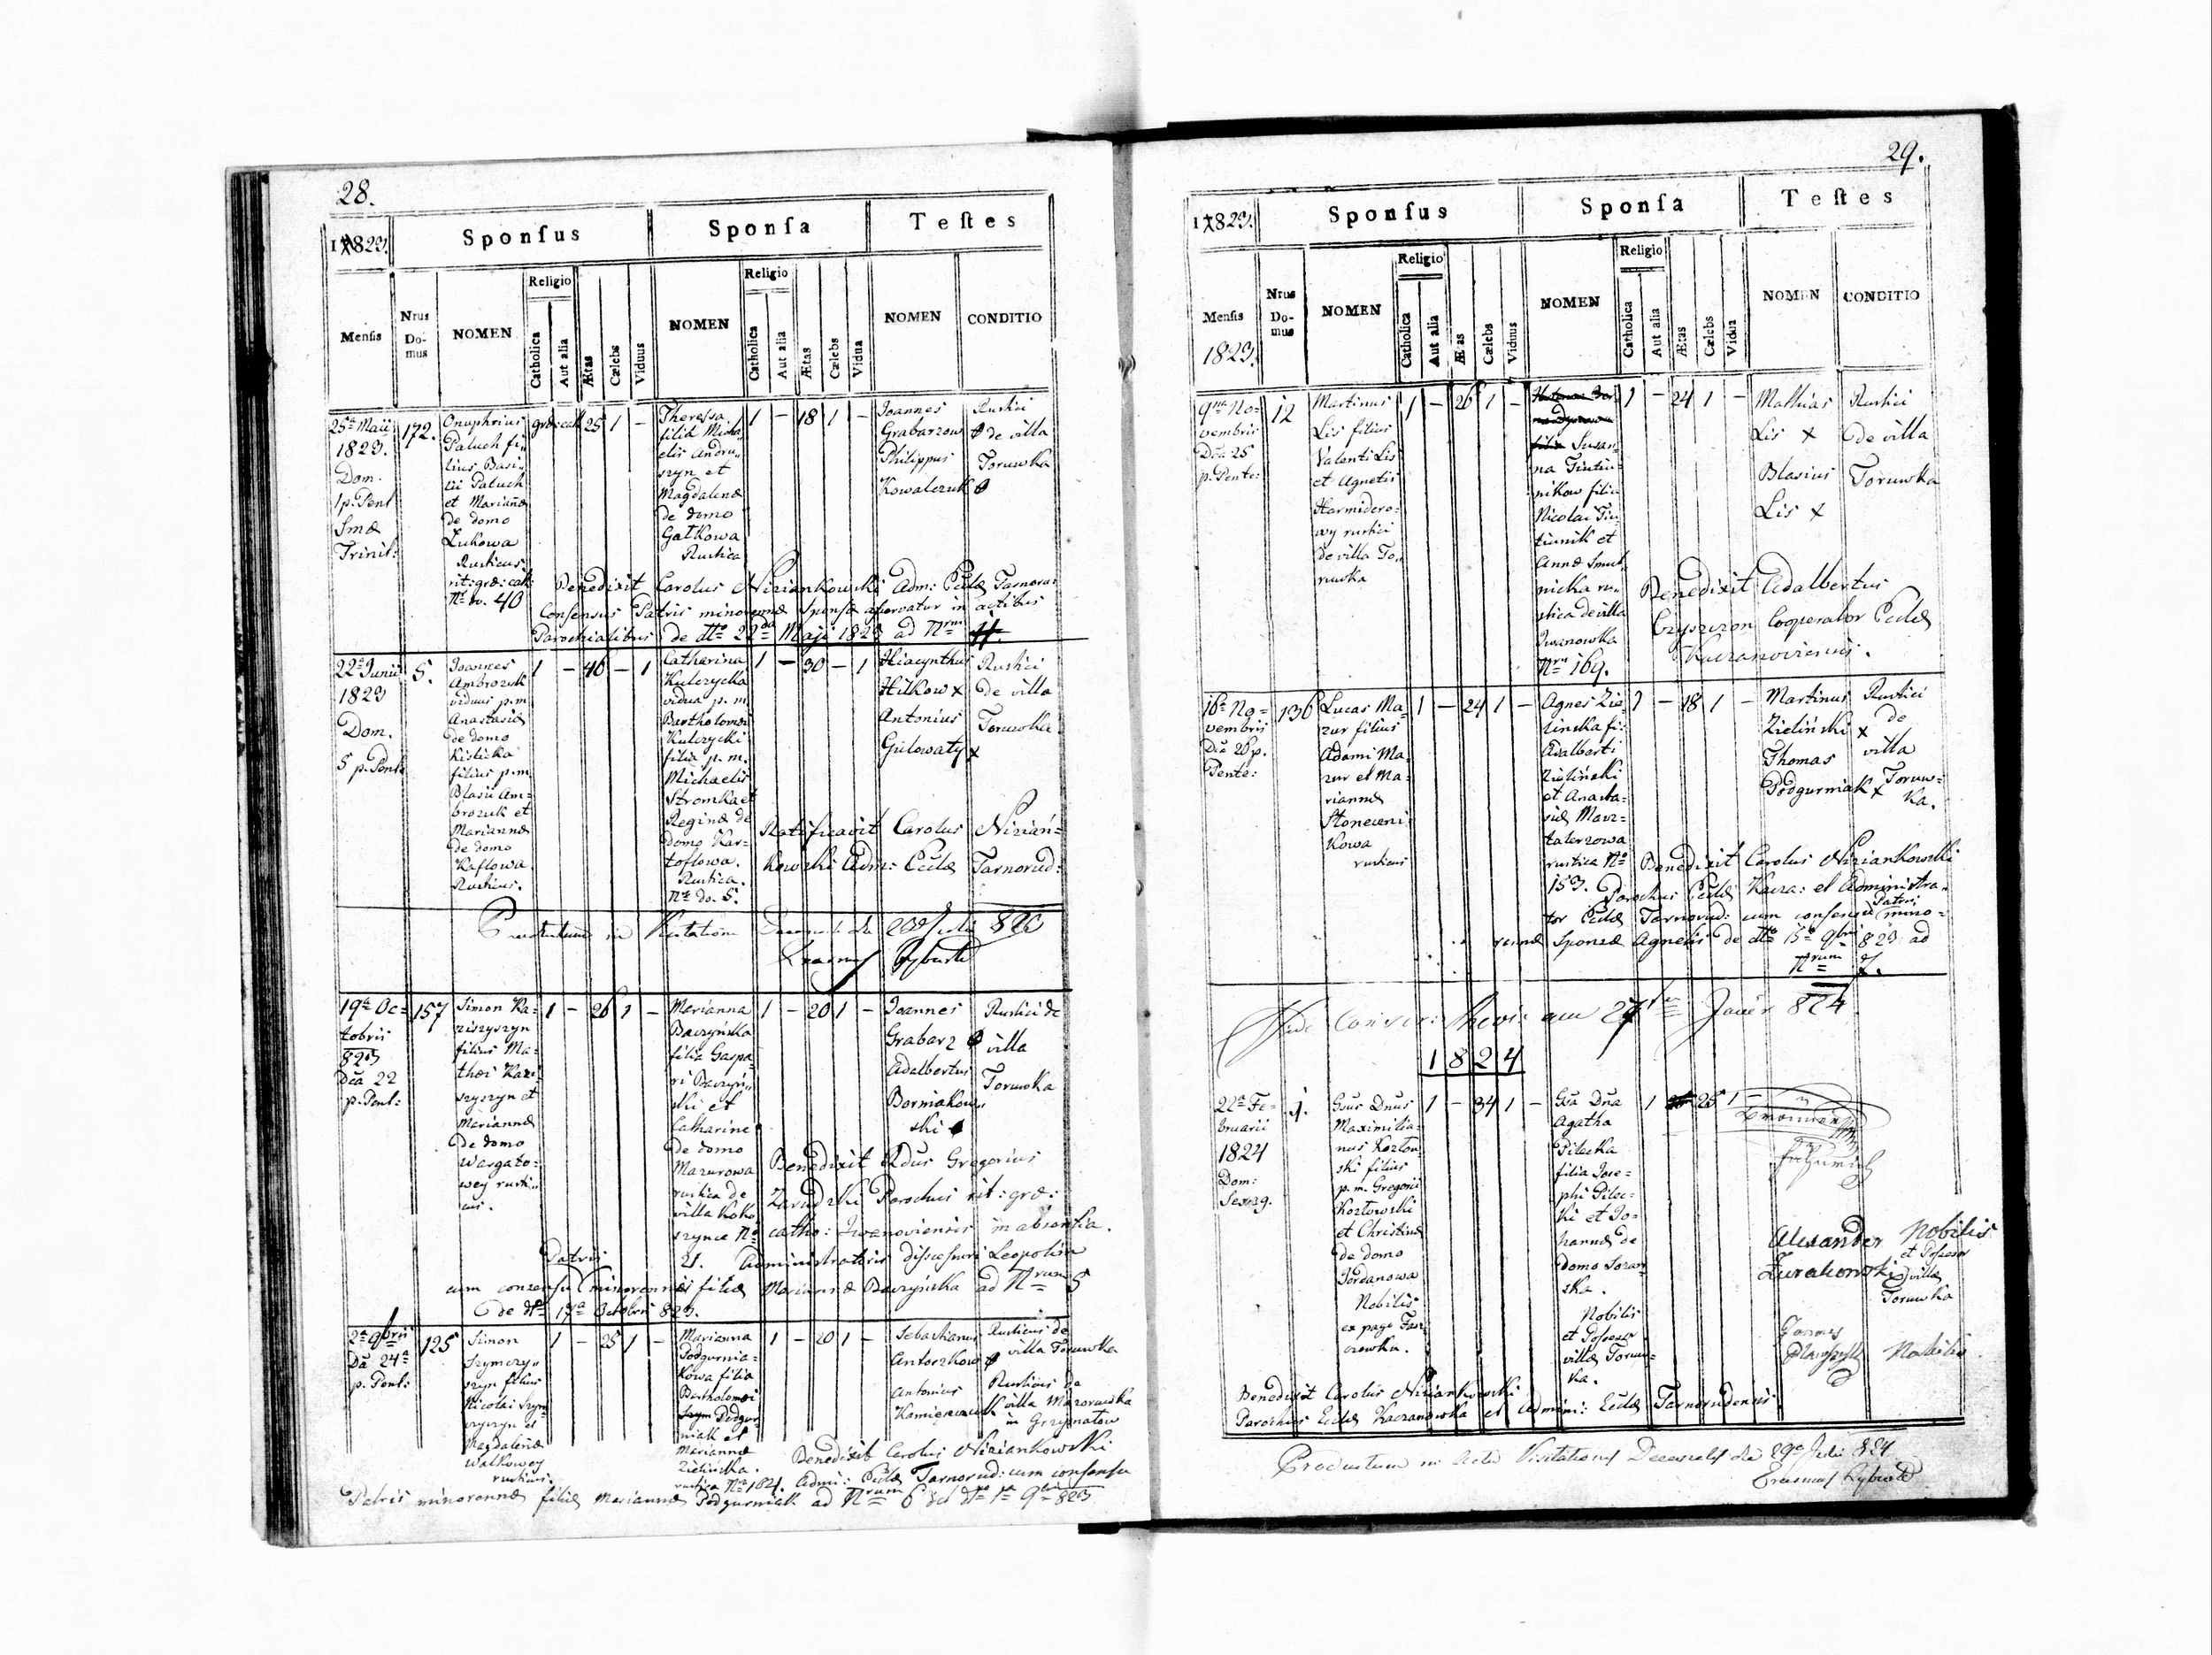 28.
1823.
Sponſus
Sponſa
Teſtes
Menſis
Nrus Do-mus
NOMEN
Religio
Catholica
Aut alia
Ætas
Cælebs
Viduus
NOMEN
Religio
Catholica
Aut alia
Ætas
Cælebs
Vidua
NOMEN
CONDITIO
25ta Maii
1823.
Dom.
1 p. Pent
Smæ
Trinit:
172.
Onuphrius
Paluch fi„
lius Basi„
lii Paluch
et Mariannæ
de domo
Zukowa
Rusticus
rit: græ: cat:
Nro do. 40
græ: cat
25 1 –
Theressa
filia Micha
elis Andru„
szyn et
Magdalenæ
de domo
Gałkowa
Rustica
1 – 18 1 –
Joannes
Grabarzow
Philippus
Kowalczuk
Rustici
de villa
Toruwka
Benedixit Carolus Niziankowski Adm: Ecclæ Tarnoru:
Consensus Patris minorennæ Sponsæ aſservatur in actibus
Parochialibus de dtto 22da Maji 1823 ad Nrum
22a Junii
1823
Dom.
5 p. Pent:
5.
Joannes
Ambrozuk
viduus p.m
Anastasiæ
de domo
Kislicka
filius p.m
Blasii Am=
brozuk et
Mariannæ
de domo
Kaflowa.
Rusticus.
1 – 46 – 1
Catharina
Kulczycka
vidua p. m.
Bartholomei
Kulczycki
filia p. m.
Michaelis
Stromka et
Reginæ de
domo Kar=
toflowa.
Rustica.
Nro do. 5.
1 – 30 – 1
Hiacynthus
Hilkow x
Antonius
Gulowaty x
Rustici
de villa
Toruwka
Ratificavit Carolus Niziań=
kowski Adm: Ecclæ Tarnorud:
Productum in Visitatione Decanali die 23a Julii 823
Erasmus
19a Oc=
tobris
823
Dca 22
p. Pent:
157
Simon Ka=
ziszyszyn
filius Ma=
thei Kazi=
szyszyn et
Mariannæ
de domo
Wargato=
wey rusti„
cus.
1 – 26 1 –
Marianna
Baczyńska
filia Gaspa=
ri Baczyń„
ski et
Catharine
de domo
Mazurowa
rustica de
villa Koko
szynce No
21.
1 – 20 1 –
Joannes
Grabarz
Adalbertus
Borniakow„
ski
Rustici de
villa
Toruwka
Benedixit Rdus Gregorius
Zawidzki Parochus rit: græ:
catho: Iwanoviensis in absentia
Administratoris discessuri Leopolim
cum consensu Patris minorennis filiæ Mariannæ Baczyńska ad Nrum 5
de dto 17a Octobris 823.
2a 9bris
Da 24a
p. Pent:
125
Simon
Szymczy„
szyn filius
Nicolai Szym
czyszyn et
Magdalenæ
Walkowey
rusticus.
1 – 25 1 –
Marianna
Podgurnia=
kowa filia
Bartholomei
Podgur=
niak et
Mariannæ
Zielińska.
rustica No 164.
1 – 20 1 –
Sebastianus
Antoszkow
Antonius
Rusticus de
villa Toruwka
Rusticus de
villa Mazorowka
in Grzymałow
Benedixit Carolus Niziankowski
Admi: Ecclæ Tarnorud: cum consensu
Patris minorennæ filiæ Mariannæ Podgurniak ad Nrum 6 de dto 1a 9bris 823
29.
1823.
Sponſus
Sponſa
Teſtes
Menſis
1823.
Nrus Do-mus
NOMEN
Religio
Catholica
Aut alia
Ætas
Cælebs
Viduus
NOMEN
Religio
Catholica
Aut alia
Ætas
Cælebs
Vidua
NOMEN
CONDITIO
9na No=
vembris
Dca 25
p. Pente:
12
Martinus
Lis filius
Valenti Lis
et Agnetis
Harmidero=
wy rustici
de villa To„
ruwka
1 – 26 1 –
filia Susan=
na Tiutiu=
nikow filia
Nicolai Tiu=
tiunik et
Annæ Smut
nicka ru„
stica de villa
Iwanowka
Nru 169.
1 – 24 1 –
Mathias
Lis x
Blasius
Lis x
Rustici
de villa
Toruwka
Benedixit Adalbertus
Czyszczon Cooperator Ecclæ
Kaczanoviensis.
16a No=
vembris
Dca 26 p.
Pente:
136
Lucas Ma=
zur filius
Adami Ma=
zur et Ma=
riannæ
Słonecni
kowa
rusticus
1 – 24 1 –
Agnes Zie=
linska fi:
Adalberti
Zieliński
et Anasta=
siæ Mar=
talerzowa
rustica No
153.
1 – 18 1 –
Martinus
Zieliński x
Thomas
Podgurniak x
Rustici
de
villa
Toruw=
ka.
Benedixit Carolus Niziankowski
Parochus Ecclæ Kacza: et Administra„
tor Eccle Tarnorud: cum consensu Patris mino=
rennæ Sponsæ Agnetis de dto 15a 9bris 823 ad
Nrum 7.
am 27ten Janer 824
1824
22a Fe=
bruarii
1824
Dom:
Sexag.
1.
Gsus Dnus
Maximilia=
nus Kozłow
ski filius
p. m. Gregorii
Kozłowski
et Christinæ
de domo
Jordanowa
Nobilis
ex pago Fasz
czowka.
1 – 34 1 –
Gsa Dna
Agatha
Pilecka
filia Jose=
phi Pilec=
ki et Jo=
hannæ de
domo Soran
ska.
Nobilis
et Poſseſsor
villæ Toruw=
ka.
1 25 1 –
Alexander
Zurakowski
Nobilis
et Poſseſsor
villæ
Toruwka
Nobilis
Benedixit Carolus Niziankowski
Parochus Eccle Kaczanowka et Admini: Eccle Tarnorudensis
Productum in Actu Visitationis Decanalis die 29a Julii 824
Erasmus